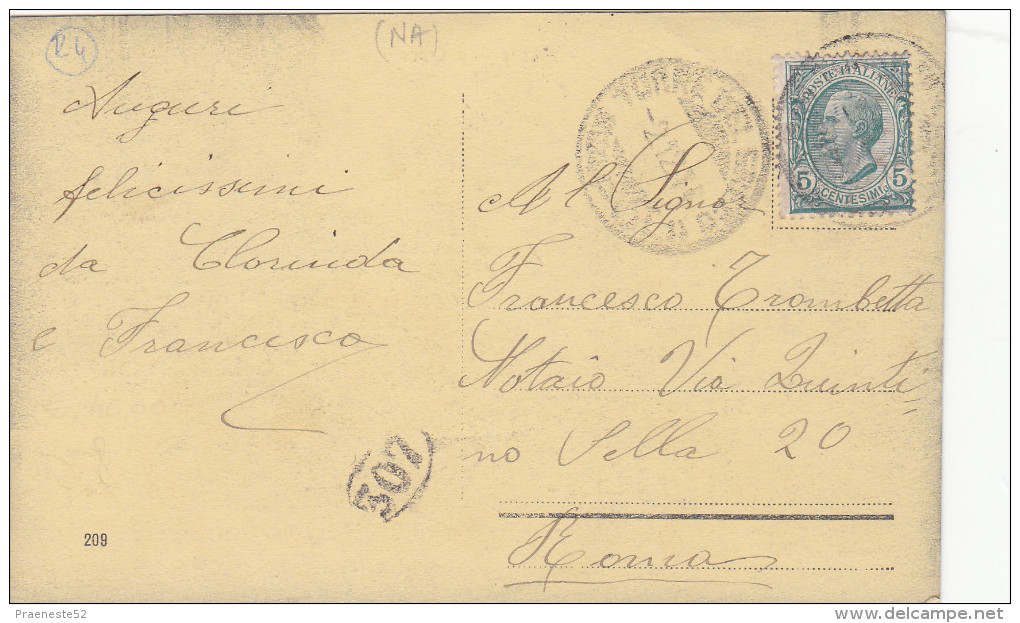 R4
(NA)
Auguri
felicissimi
da Clorinda
e Francisco
TORRE DEL
POSTE ITALIANE
5 CENTESIMI 5
Al Signor
Francesco Trombetta
Notaio Via Quinti
no Sella 20
Roma
507
209
Praeneste52
delcampe.net